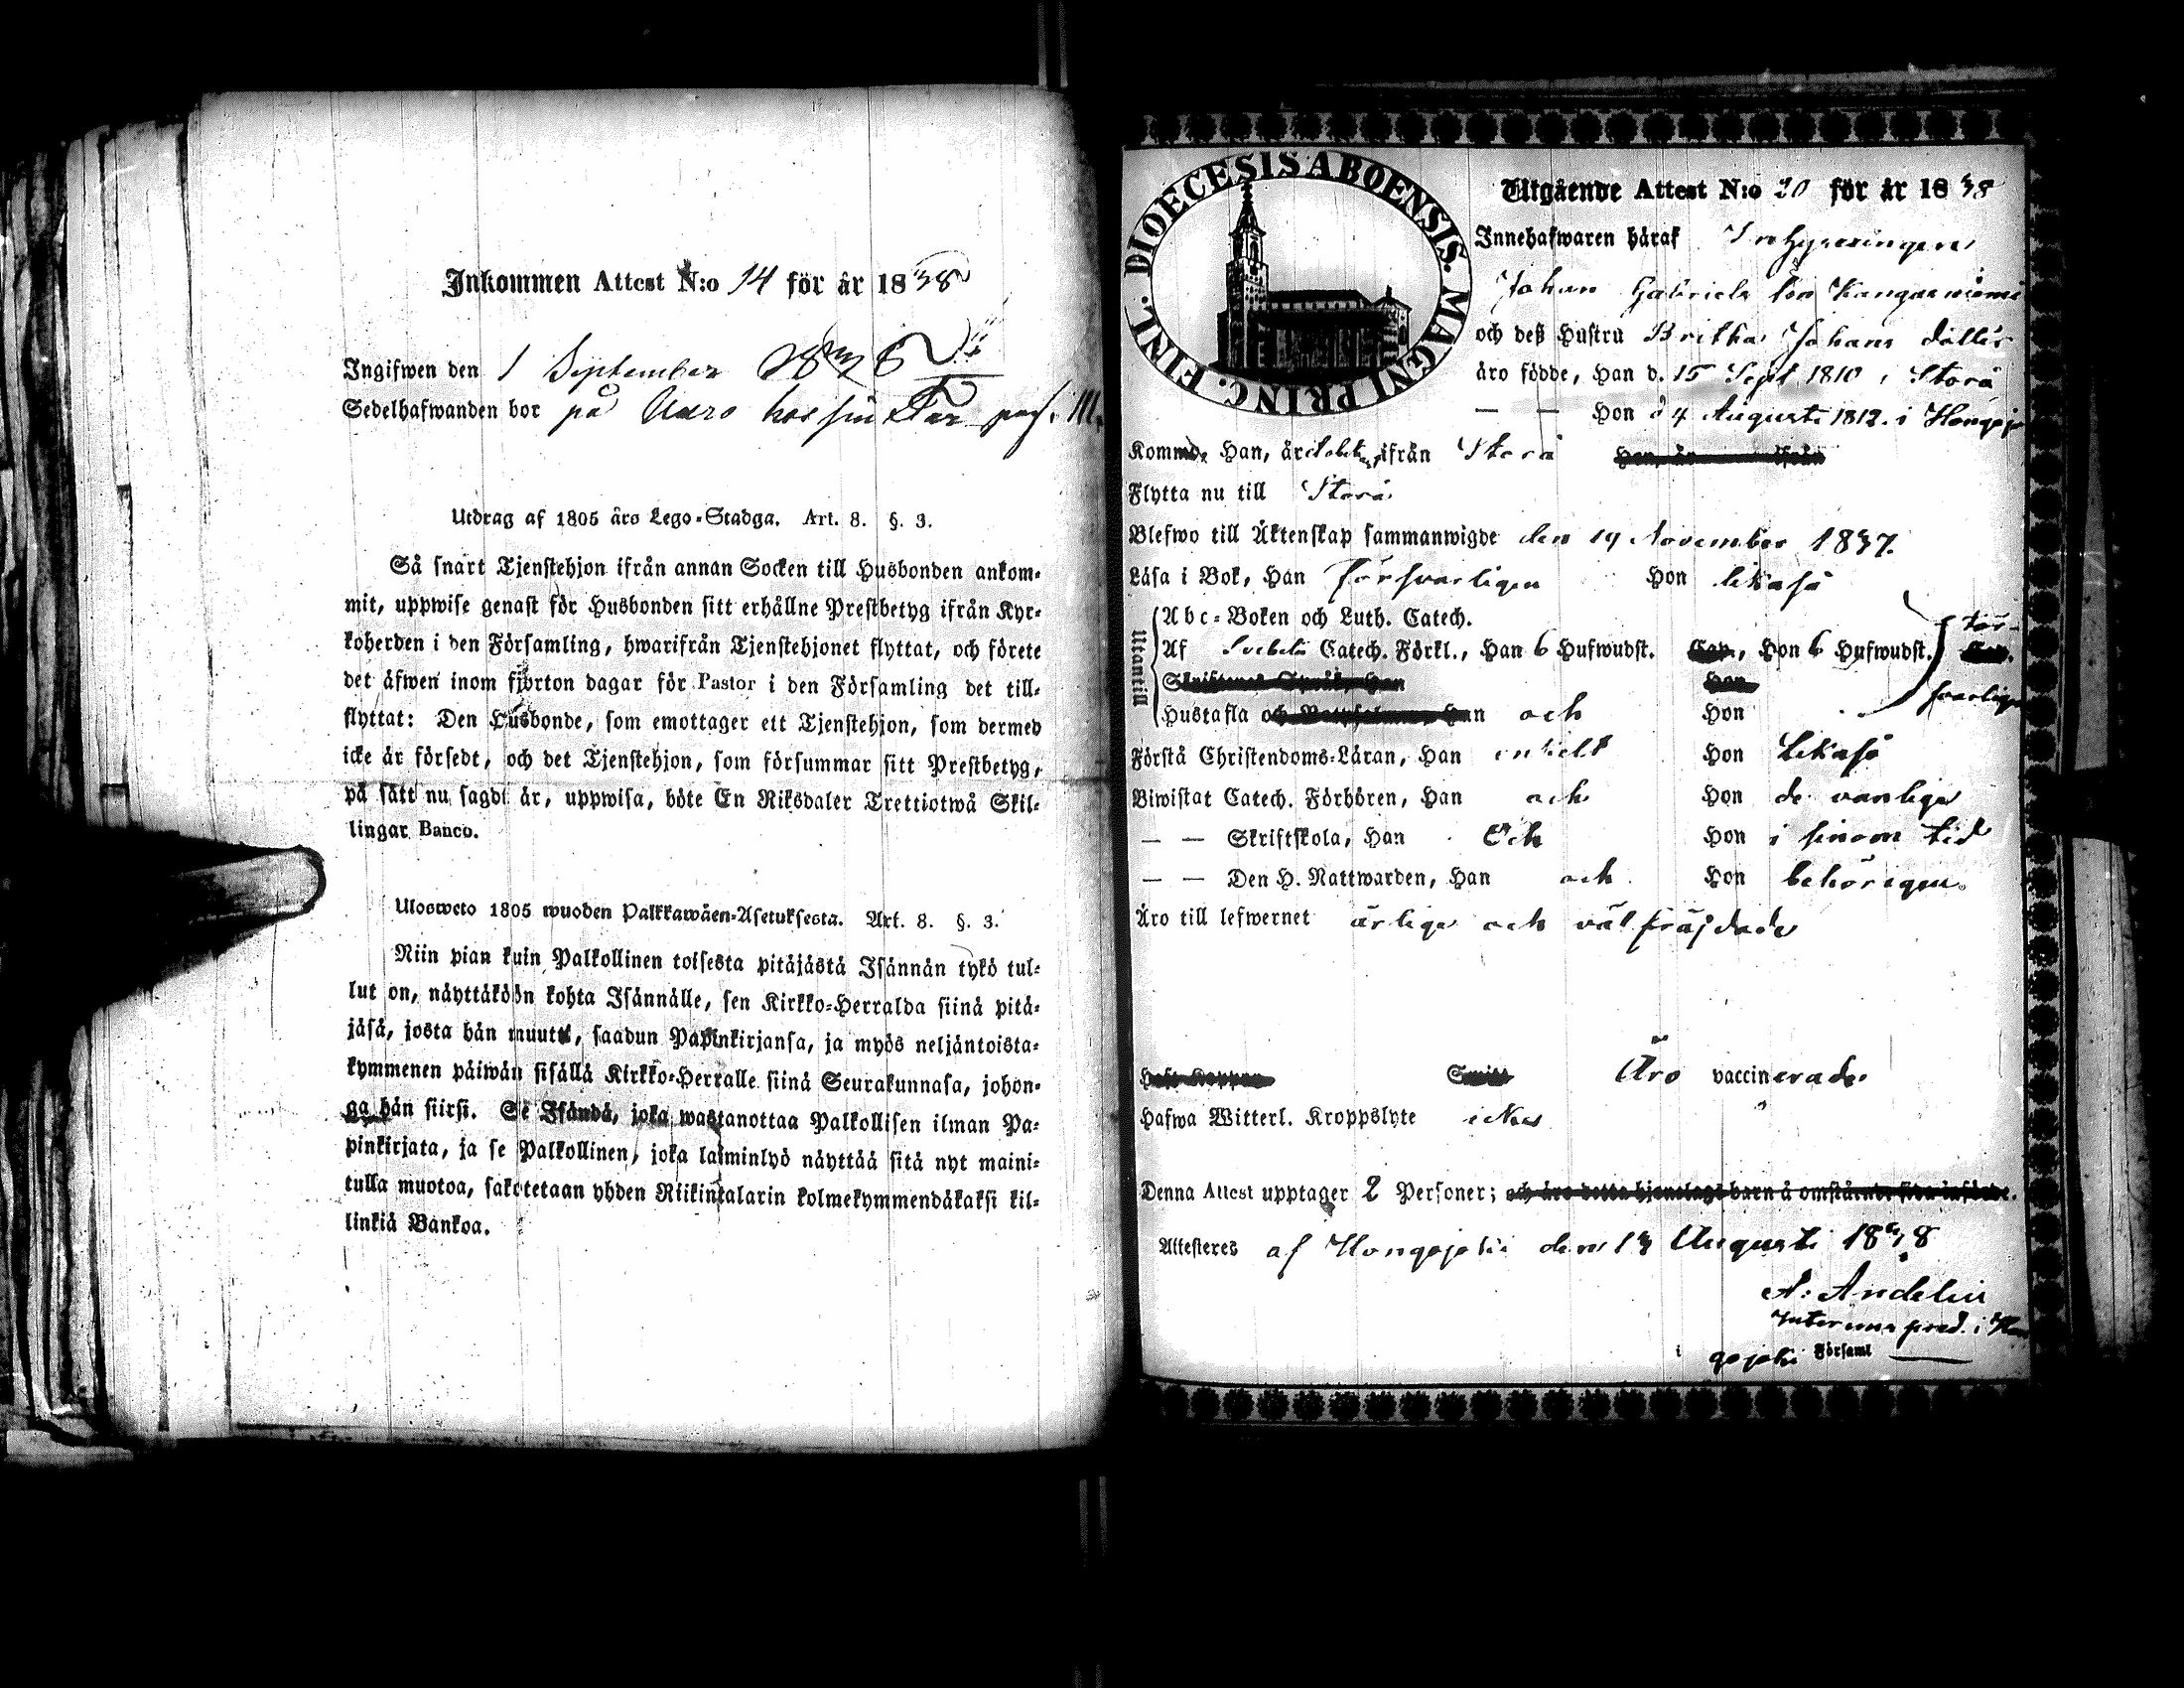 Inkommen Attest N:o 14 för år 1838
Ingifwen den 1 September 1838
Sedelhafwanden bor på Uuro hos sin Far pag.
Utdrag af 1805 års Lego-Stadga. Art. 8. §. 3.
Så snart Tjenstehjon ifrån annan Socken till Husbonden ankom-
mit, uppwise genast för Husbonden sitt erhållne Prestbetyg ifrån Kyr-
koherden i den Församling, hwarifrån Tjenstehjonet flyttat, och förete
det äfwen inom fjorton dagar för Pastor i den Församling det till-
flyttat: Den Husbonde, som emottager ett Tjenstehjon, som dermed
icke är försedt, och det Tjenstehjon, som försummar sitt Prestbetyg,
på sätt nu sagdt är, uppwisa, böte En Riksdaler Trettiotwå Skil-
lingar Banco.
Ulosweto 1805 wuoden Palkkawäen-Asetuksesta. Art. 8. §. 3.
Niin pian kuin Palkollinen toisesta pitäjästä Isännän tykö tul-
lut on, näyttäköön kohta Isännälle, sen Kirkko-Herralda siinä pitä-
jäsä, josta hän muutti, saadun Papinkirjansa, ja myös neljäntoista-
kymmenen päiwän sisällä Kirkko-Herralle siinä Seurakunnasa, johon-
ga hän siirsi. Se Isändä, joka wastanottaa Palkollisen ilman Pa-
pinkirjata, ja se Palkollinen, joka laiminlyö näyttää sitä nyt maini-
tulla muotoa, sakotetaan yhden Riikintalarin kolmekymmendäkaksi kil-
linkiä Bankoa.
DIOECESIS ABOENSIS. MAGNI PRINC. FINL.
Utgående Attest N:o 20 för år 1838
Innehafwaren häraf Inhysesingen
Johan Gabriels son Kangasniemi
och deß Hustru Britha Johans dotter
äro födde, Han d. 15 Sept 1810 i Storå
— — Hon d 4 Augusti 1812. i Hongojo
Komm Han, år ifrån Storå
Flytta nu till Storå
Blefwo till Äktenskap sammanwigde den 19 November 1837.
Läsa i Bok, Han försvarligen Hon likaså
Utantill
Abc-Boken och Luth. Catech.
Af Svebelii Catech. Förkl., Han 6 Hufwudst. Cap., Hon 6 Hufwudst. Cap. för-
svarligen
Skriftenes Språk, Han Hon
Hustafla och Han och Hon
Förstå Christendoms-Läran, Han enkelt Hon likaså
Biwistat Catech. Förhören, Han och Hon de vanliga
— — Skriftskola, Han Och Hon i sinom tid
— — Den H. Nattwarden, Han och Hon behörigen
Äro till lefwernet ärliga och välfräjdade
Haft Koppor Smitt Äro vaccinerade
Hafwa Witterl. Kroppslyte icke
Denna Attest upptager 2 Personer; och äro detta hjonelags barn å omstående sida införde.
Attesteres af Hongojoki den 13 Augusti 1838
A: Andelin
Interims pred. i Hon
i gojoki Församl